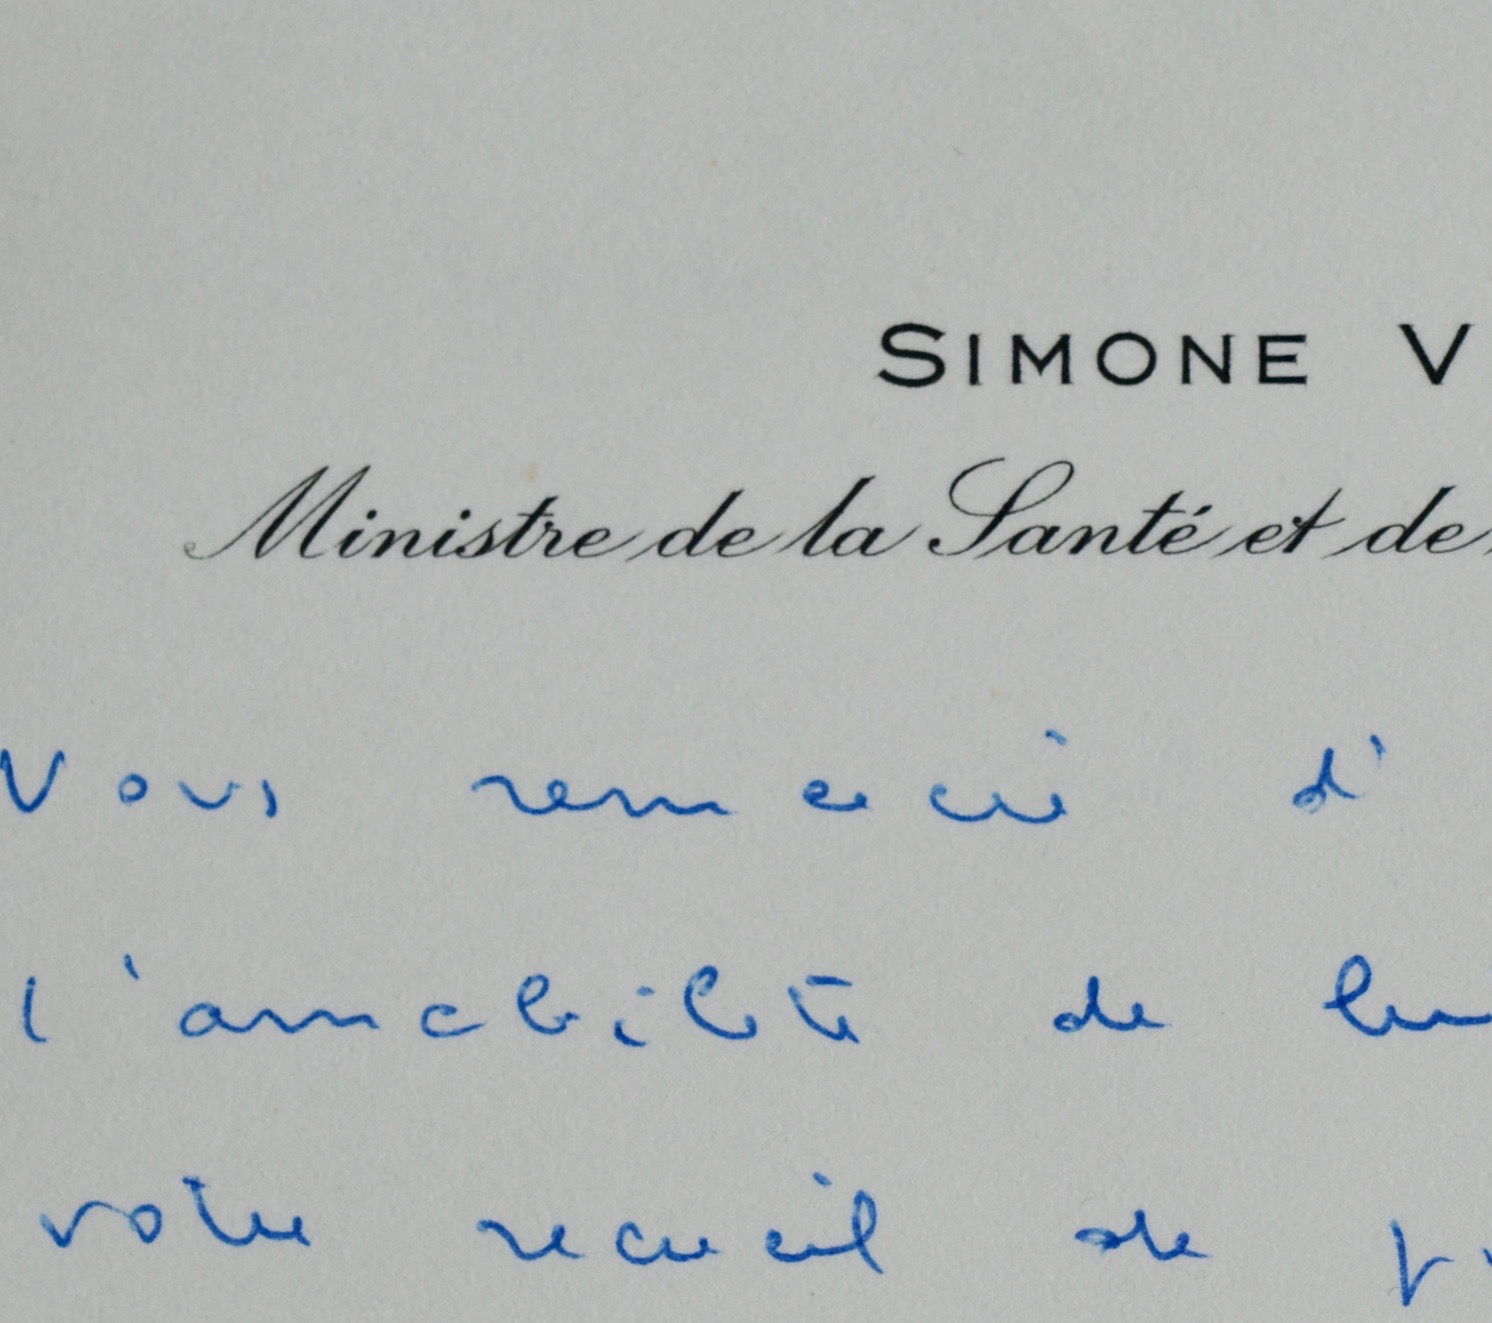 SIMONE V
Ministre de la Santé et de
Vous remercie d'
l'amabilité de
votre recueil de